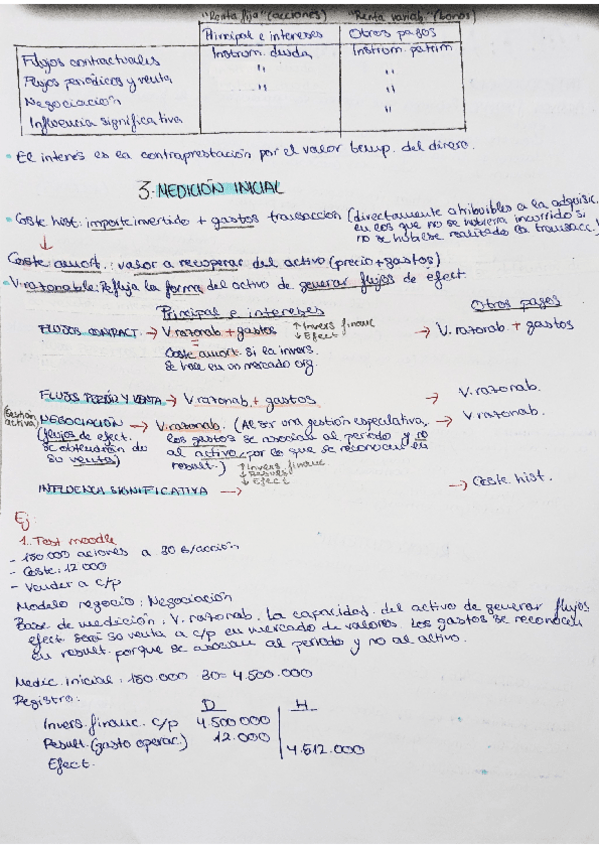 "Renta fija" (acciones) "Renta variab." (bonos)
Principal e intereses Otros pagos
Flujos contractuales Instrum. deuda Instrum. patrim
Flujos periódicos y venta " "
Negociación " "
Influencia significativa "
· El interés es la contraprestación por el valor temp. del dinero.
3. MEDICIÓN INICIAL
· Coste hist: importe invertido + gastos transacción (directamente atribuibles a la adquisic.
en los que no se hubiera incurrido si
no se hubiese realizado la transacc.)
↓
Coste amort.: valor a recuperar del activo (precio + gastos)
· V. razonable: Refleja la forma del activo de generar flujos de efect.
Principal e intereses Otros pagos
FLUJOS CONTRACT. → V. razonab + gastos ↑ Invers financ → V. razonab. + gastos
↓ Efect
Coste amort. Si la invers.
se hace en un mercado org.
FLUJOS PERIÓD Y VENTA → V razonab. + gastos → V. razonab.
(Gestión activa) NEGOCIACIÓN → V. razonab. (Al ser una gestión especulativa, → V razonab.
(flujos de efect. los gastos se asocian al periodo y no
se obtendrán de al activo, por lo que se reconocen en
su venta) result.) ↑ Invers. financ
↓ Result
↓ Efect
INFLUENCIA SIGNIFICATIVA → → Coste hist.
Ej
1. Test moodle
- 150 000 aciones a 30 €/acción
- Coste: 12 000
- Vender a c/p
Modelo negocio: Negociación
Base de medición: V. razonab. La capacidad del activo de generar flujos
efect será su venta a c/p en mercado de valores. Los gastos se reconocen
en result. porque se asocian al periodo y no al activo.
Medic. inicial: 150.000 30 = 4.500.000
Registro:
D H
Invers. financ. c/p 4 500 000
Result. (gasto operac.) 12.000
Efect. 4.512.000